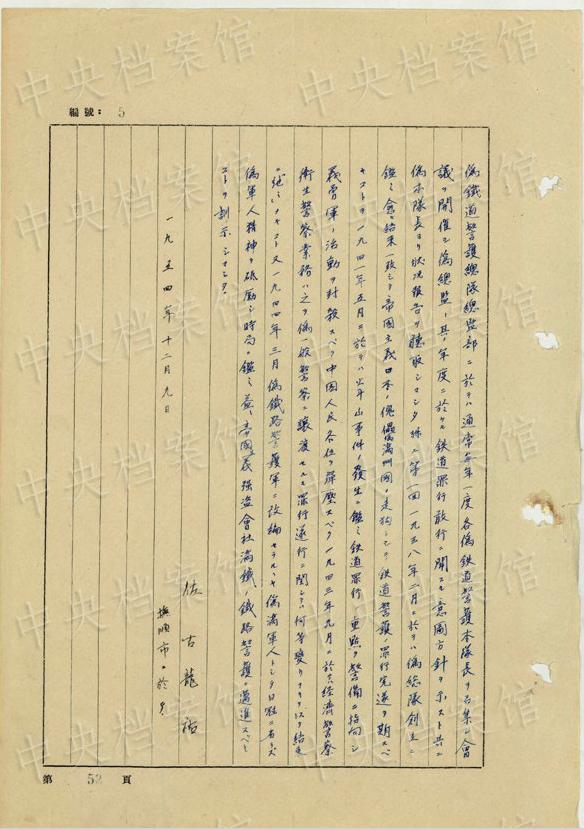 編號：5
偽鐵道警護總隊總監部ニ於テハ通常每年一度各偽鐵道警護本隊長ヲ召集シ會
議ヲ開催シ偽總監ハ其ノ年度ニ於ケル鉄道罪行敢行ニ関スル意図方針ヲ示スト共ニ
偽本隊長ヨリ狀況報告ヲ聽取シマシタ 殊ニ第一回一九三八年二月ニ於テハ偽總隊創立ニ
鑑ミ 結果一致シテ帝國主義日本ノ傀儡滿州國ノ走狗トシテ鉄道警護ノ罪行完遂ヲ期スベ
キコトヲ 一九四一年五月ニ於テハ 事件ノ發生ニ鑑ミ鉄道罪行ノ重點ヲ警備ニ指向シ
義勇軍ノ活動ヲ封殺スベク中國人民各位ヲ彈壓スベク 一九四三年九月ニ於テハ経済警察
衛生警察業務ハ之ヲ偽一般警察ニ讓渡セルモ罪行遂行ニ関シテハ何等變リナキ
コト 又一九四四年三月偽鐵路警護軍ニ改編セラルルヤ偽滿軍人トシテ
偽軍人精神ヲ砥励シ時局ニ鑑ミ益々帝國主義强盜會社滿鐵ノ鐵路警護ニ邁進スベキ
コトヲ訓示シマシタ
一九五四年十二月九日
佐古龍祐
撫順市ニ於テ
第 52 頁
中央档案馆